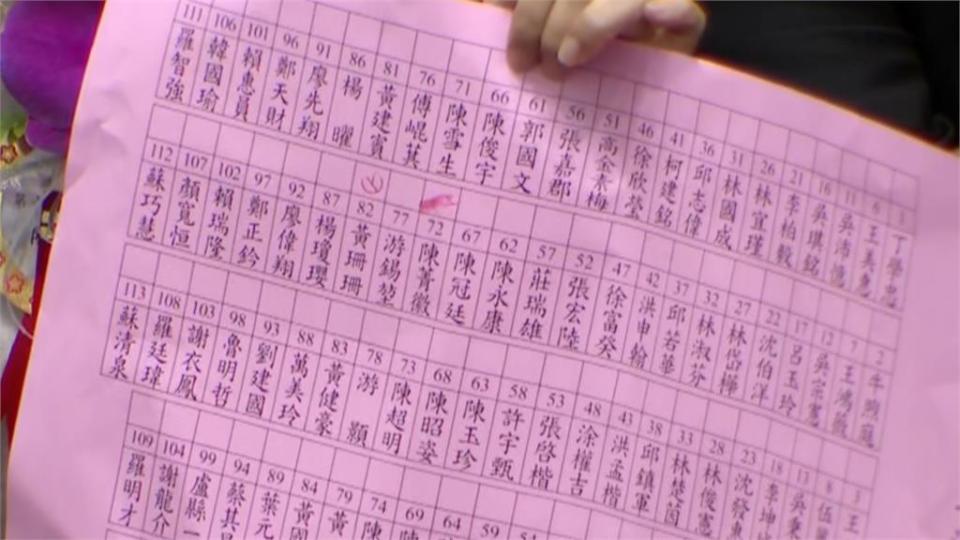 1 丁學忠
6 王美惠
11 吳沛憶
16 吳琪銘
21 李柏毅
26 林宜瑾
31 林國成
36 邱志偉
41 柯建銘
46 徐欣瑩
51 高金素梅
56 張嘉郡
61 郭國文
66 陳俊宇
71 陳雪生
76 傅崐萁
81 黃建賓
86 楊曜
91 廖先翔
96 鄭天財
101 賴惠員
106 韓國瑜
111 羅智強
2 牛煦庭
7 王鴻薇
12 吳宗憲
17 呂玉玲
22 沈伯洋
27 林岱樺
32 林淑芬
37 邱若華
42 洪申翰
47 徐富癸
52 張宏陸
57 莊瑞雄
62 陳永康
67 陳冠廷
72 陳菁徽
77 游錫堃
82 黃珊珊
87 楊瓊瓔
92 廖偉翔
97 鄭正鈐
102 賴瑞隆
107 顏寬恒
112 蘇巧慧
3 王
8 伍
13 吳秉
18 李坤
23 沈發惠
28 林俊憲
33 林楚茵
38 邱鎮軍
43 洪孟楷
48 涂權吉
53 張啓楷
58 許宇甄
63 陳玉珍
68 陳昭姿
73 陳超明
78 游顥
83 黃健豪
88 萬美玲
93 劉建國
98 魯明哲
103 謝衣鳳
108 羅廷瑋
113 蘇清泉
59
64
69
74 陳
79 黃
84 黃國
89 葉元
94 蔡其
99 盧縣一
104 謝龍介
109 羅明才